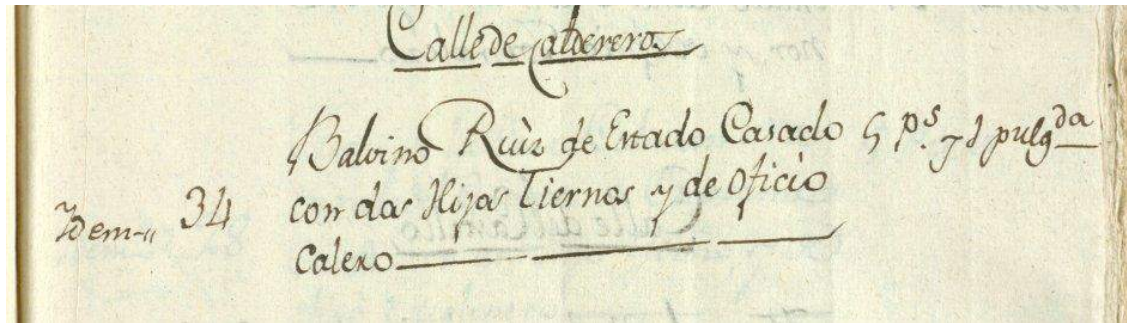 Calle de Caldereros
Balvino Ruiz de Estado Casado 5 p.s y 1 pulg.da
Ydem 34 con dos Hijas Tiernas y de Oficio
Calero